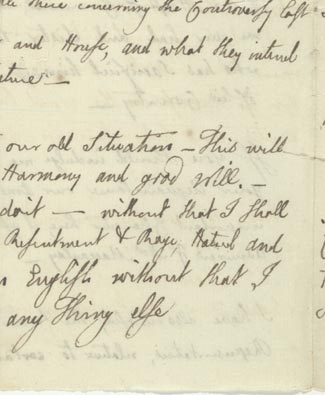 these concerning the Controversy last
and House, and what they intend
ature —
our old Situation — This will
Harmony and good Will. —
do it — without that I shall
Resentment & Rage, Hatred and
English without that I
any Thing else